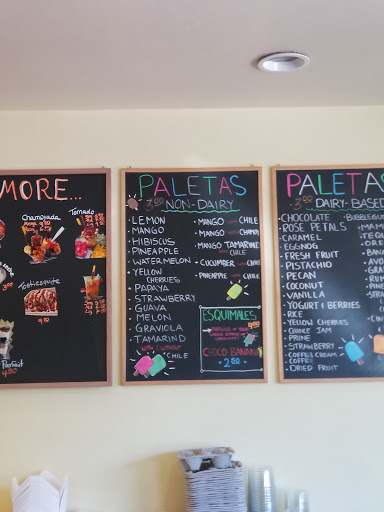 MORE...
Chamoyada
Tornado
Tostiesquite
Parfait
PALETAS
NON-DAIRY
LEMON
MANGO
HIBISCUS
PINEAPPLE
WATERMELON
YELLOW
CHERRIES
PAPAYA
STRAWBERRY
GUAVA
MELON
GRAVIOLA
TAMARIND
WITH/WITHOUT
CHILE
MANGO WITH CHILE
MANGO WITH CHAMOY
MANGO TAMARIND
WITH CHILE
CUCUMBER WITH CHILE
PINEAPPLE WITH CHILE
ESQUIMALES
CHOCO-BANANA
2.00
PALETAS
3.00 DAIRY-BASED
CHOCOLATE
ROSE PETALS
CARAMEL
EGGNOG
FRESH FRUIT
PISTACHIO
PECAN
COCONUT
VANILLA
YOGURT & BERRIES
RICE
YELLOW CHERRIES
QUINCE JAM
PRUNE
STRAWBERRY
COFFEE CREAM
COFFEE
DRIED FRUIT
BUBBLEGU
MAM
TEQ
ORE
BANA
AVO
GRA